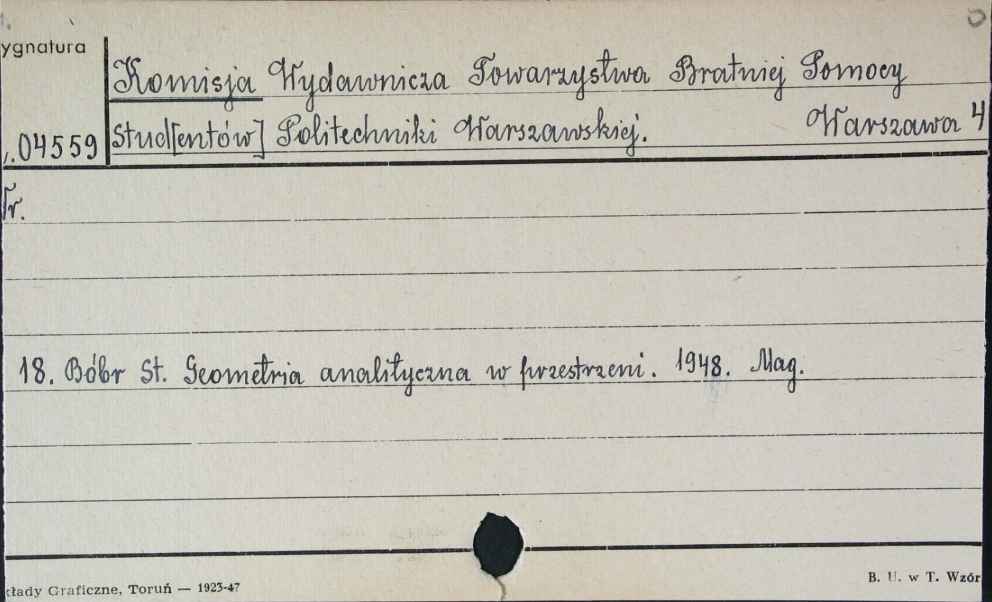 ygnatura
Komisja Wydawnicza Towarzystwa Bratniej Pomocy
.04559 Stud[entów] Politechniki Warszawskiej. Warszawa 4
Tr.
18. Bóbr St. Geometria analityczna w przestrzeni. 1948. Mag.
kłady Graficzne, Toruń — 1923-47
B. U. w T. Wzór